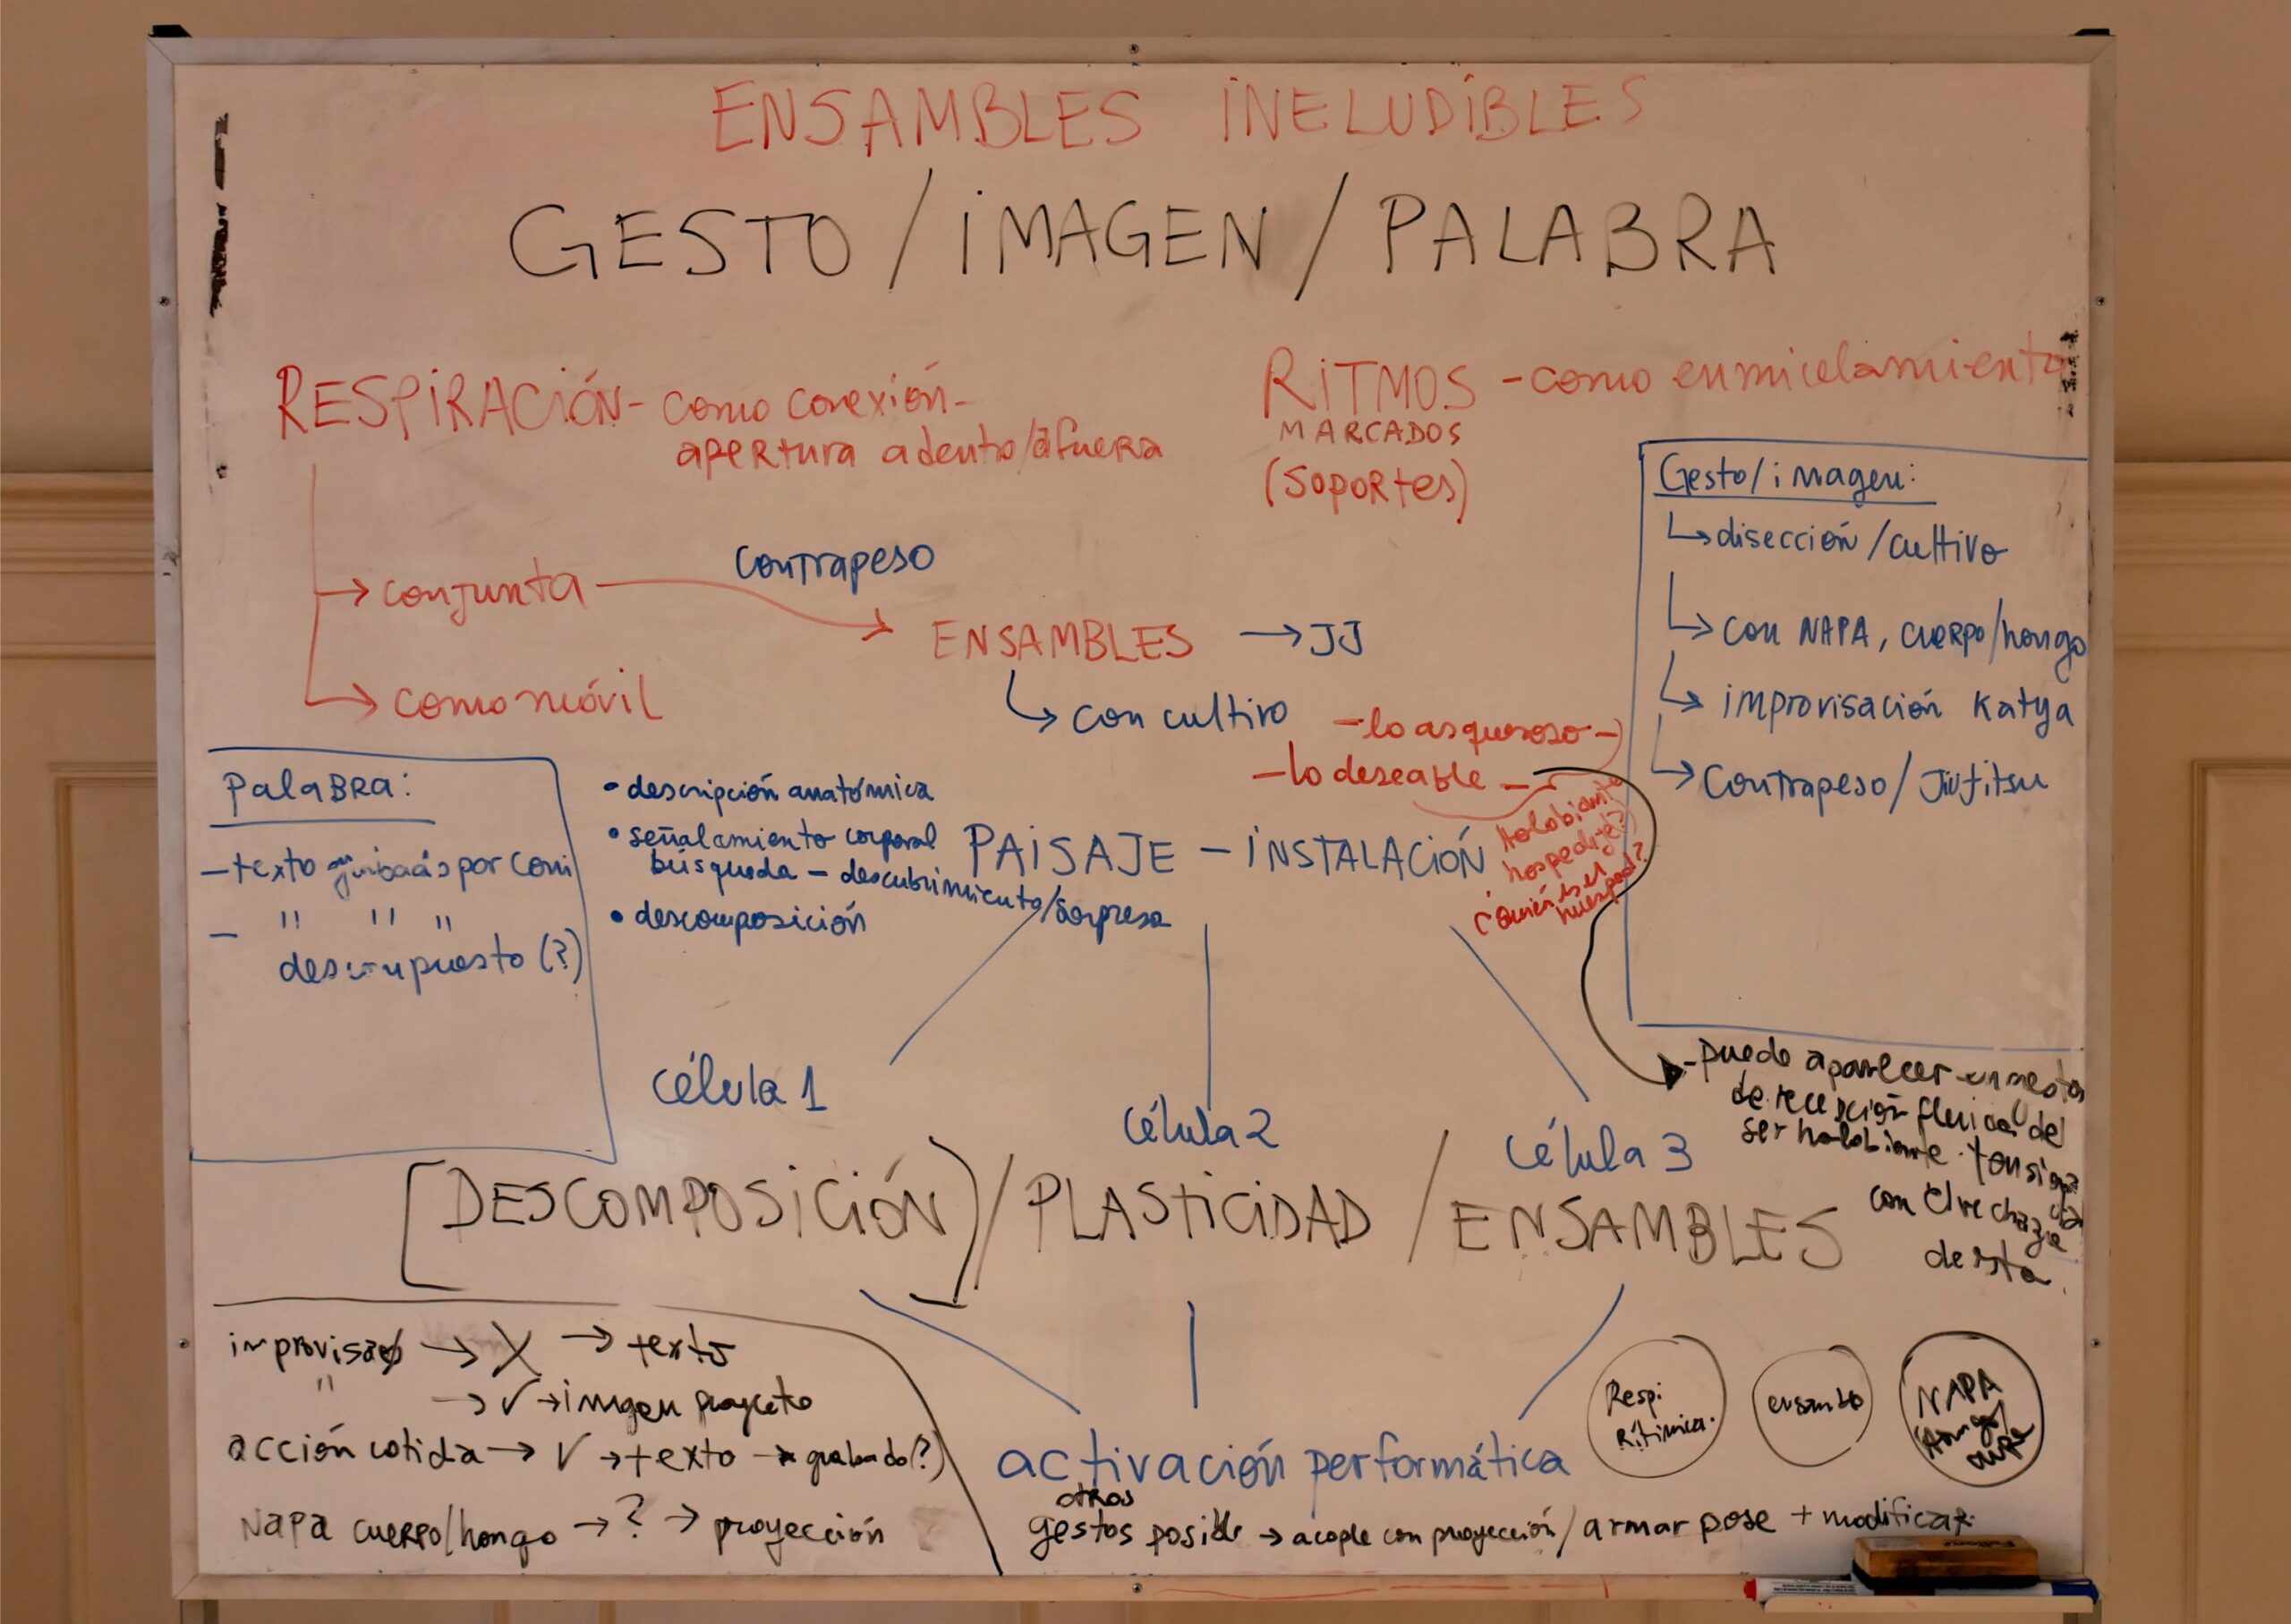 ENSAMBLES INELUDIBLES
GESTO / IMAGEN / PALABRA
RESPIRACIÓN - como conexión -
apertura adentro/afuera
→ conjunta
→ como móvil
RITMOS - como enmicelamiento
MARCADOS
(soportes)
contrapeso
ENSAMBLES → JJ
↳ con cultivo
- lo asqueroso -
- lo deseable -
holobiante
hospedaje?
¿Quién es el
huésped?
Gesto/imagen:
↳ disección/cultivo
↳ con NAPA, cuerpo/hongo
↳ improvisación Katya
↳ Contrapeso/Jiujitsu
Palabra:
- texto por Coni
- " " "
descompuesto (?)
• descripción anatómica
• señalamiento corporal
búsqueda - descubrimiento/sorpresa
• descomposición
PAISAJE - INSTALACIÓN
célula 1
célula 2
célula 3
- puede aparecer
de recepción del
ser holobiante.
con el rechazo
de esta
[DESCOMPOSICIÓN] / PLASTICIDAD / ENSAMBLES
improvisa → X → texto
" → √ → imagen proyecto
acción cotida → √ → texto → grabado(?)
NAPA cuerpo/hongo → ? → proyección
activación performática
Respi
Rítmica.
ensamble
NAPA
Hongo/
cuerpo
otros
gestos posible → acople con proyección/armar pose + modificar